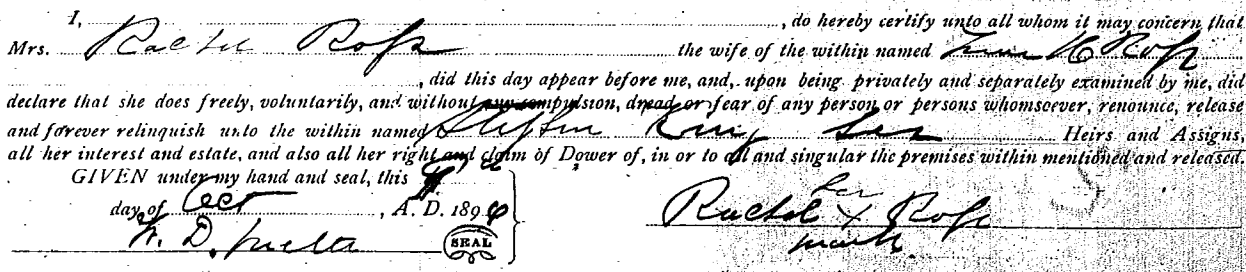 I, , do hereby certify unto all whom it may concern that
Mrs. Rachel Ross the wife of the within named H Ross
, did this day appear before me, and, upon being privately and separately examined by me, did
declare that she does freely, voluntarily, and without any compulsion, dread or fear of any person or persons whomsoever, renounce, release
and forever relinquish unto the within named Stephen King his Heirs and Assigns,
all her interest and estate, and also all her right and claim of Dower of, in or to all and singular the premises within mentioned and released.
GIVEN under my hand and seal, this
day of Oct , A. D. 1896
her
Rachel X Ross
mark
W. D. SEAL